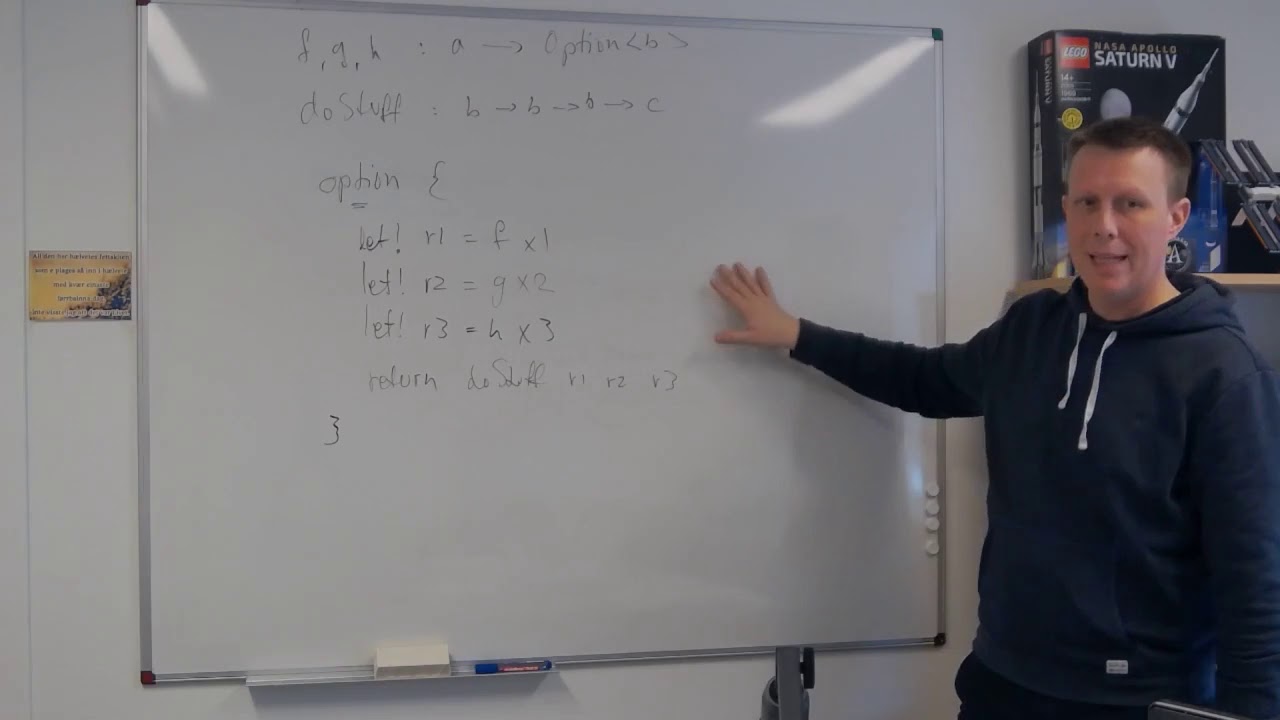 f, g, h : a → Option<b>
doStuff : b → b → b → c
option {
let! r1 = f x1
let! r2 = g x2
let! r3 = h x3
return doStuff r1 r2 r3
}
LEGO
NASA APOLLO
SATURN V
14+
1969